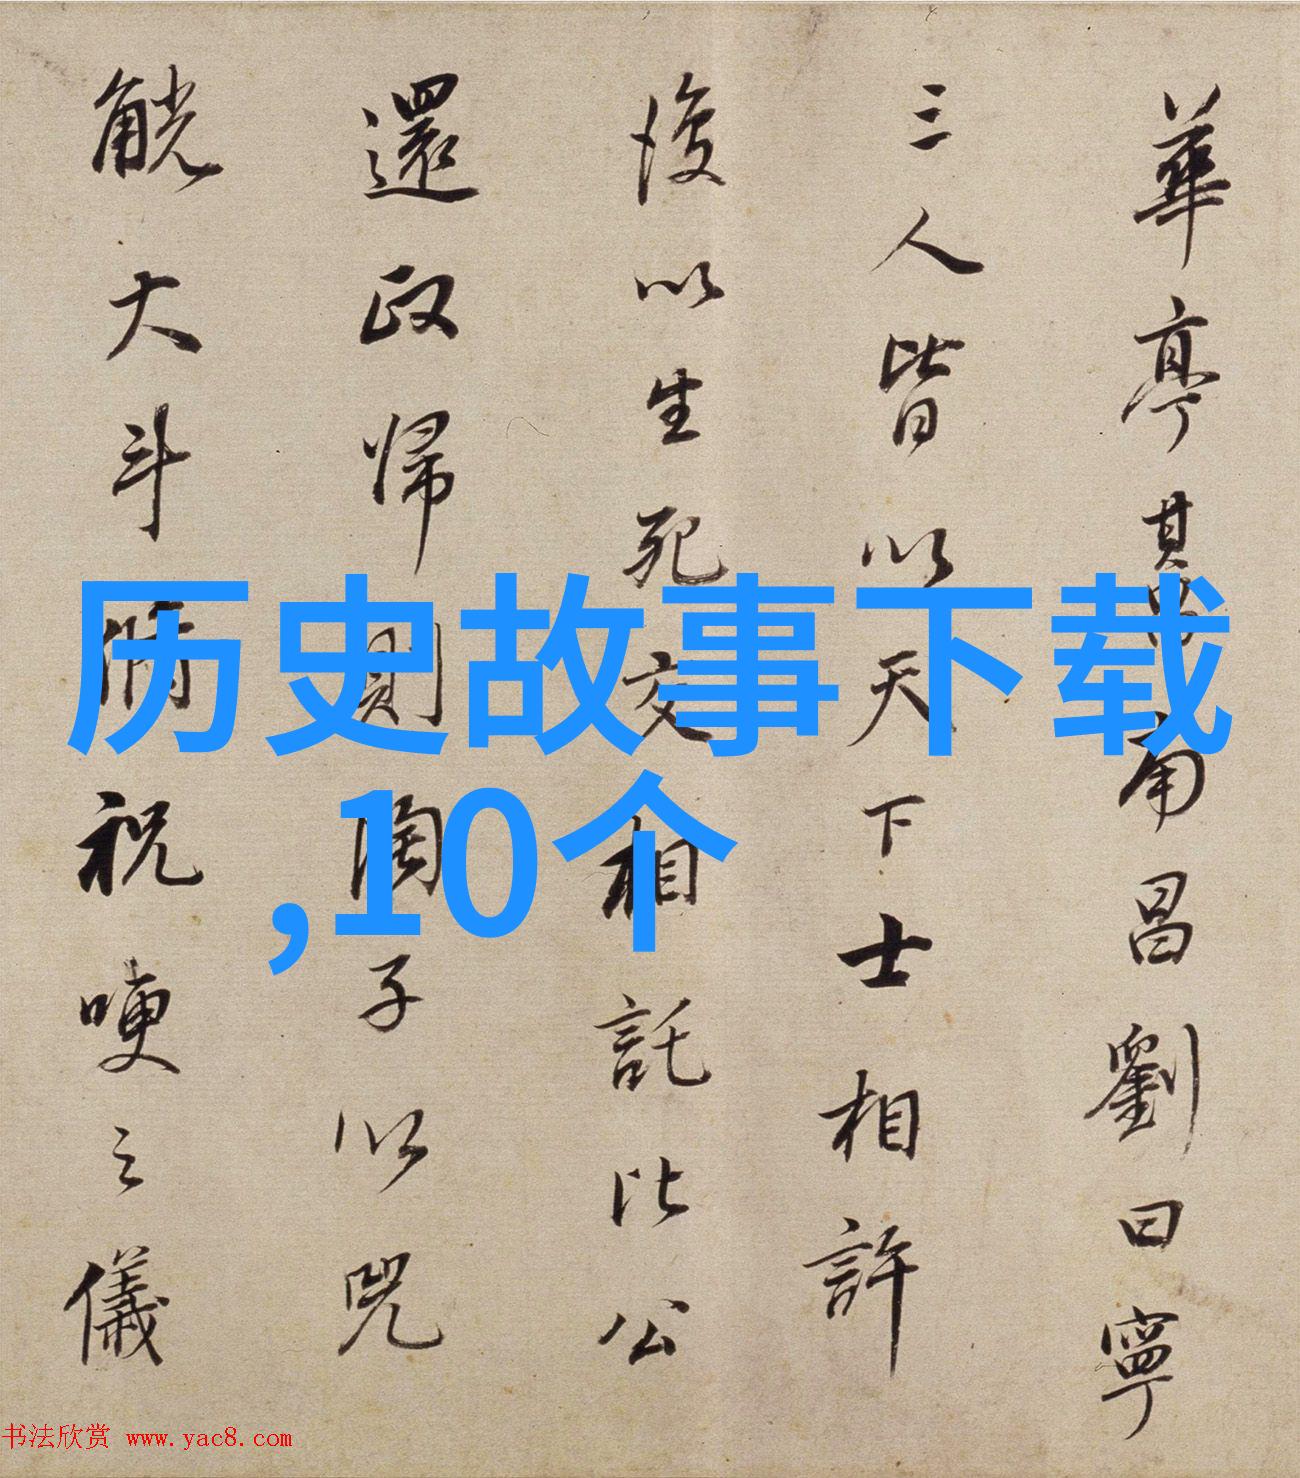 華亭其畏南昌劉曰寧
三人皆以天下士相許
後以生死交相託比公
還政歸則陶子以兕
觥大斗脩祝哽之儀
历史故事下载
,10个
书法欣赏 www.yac8.com